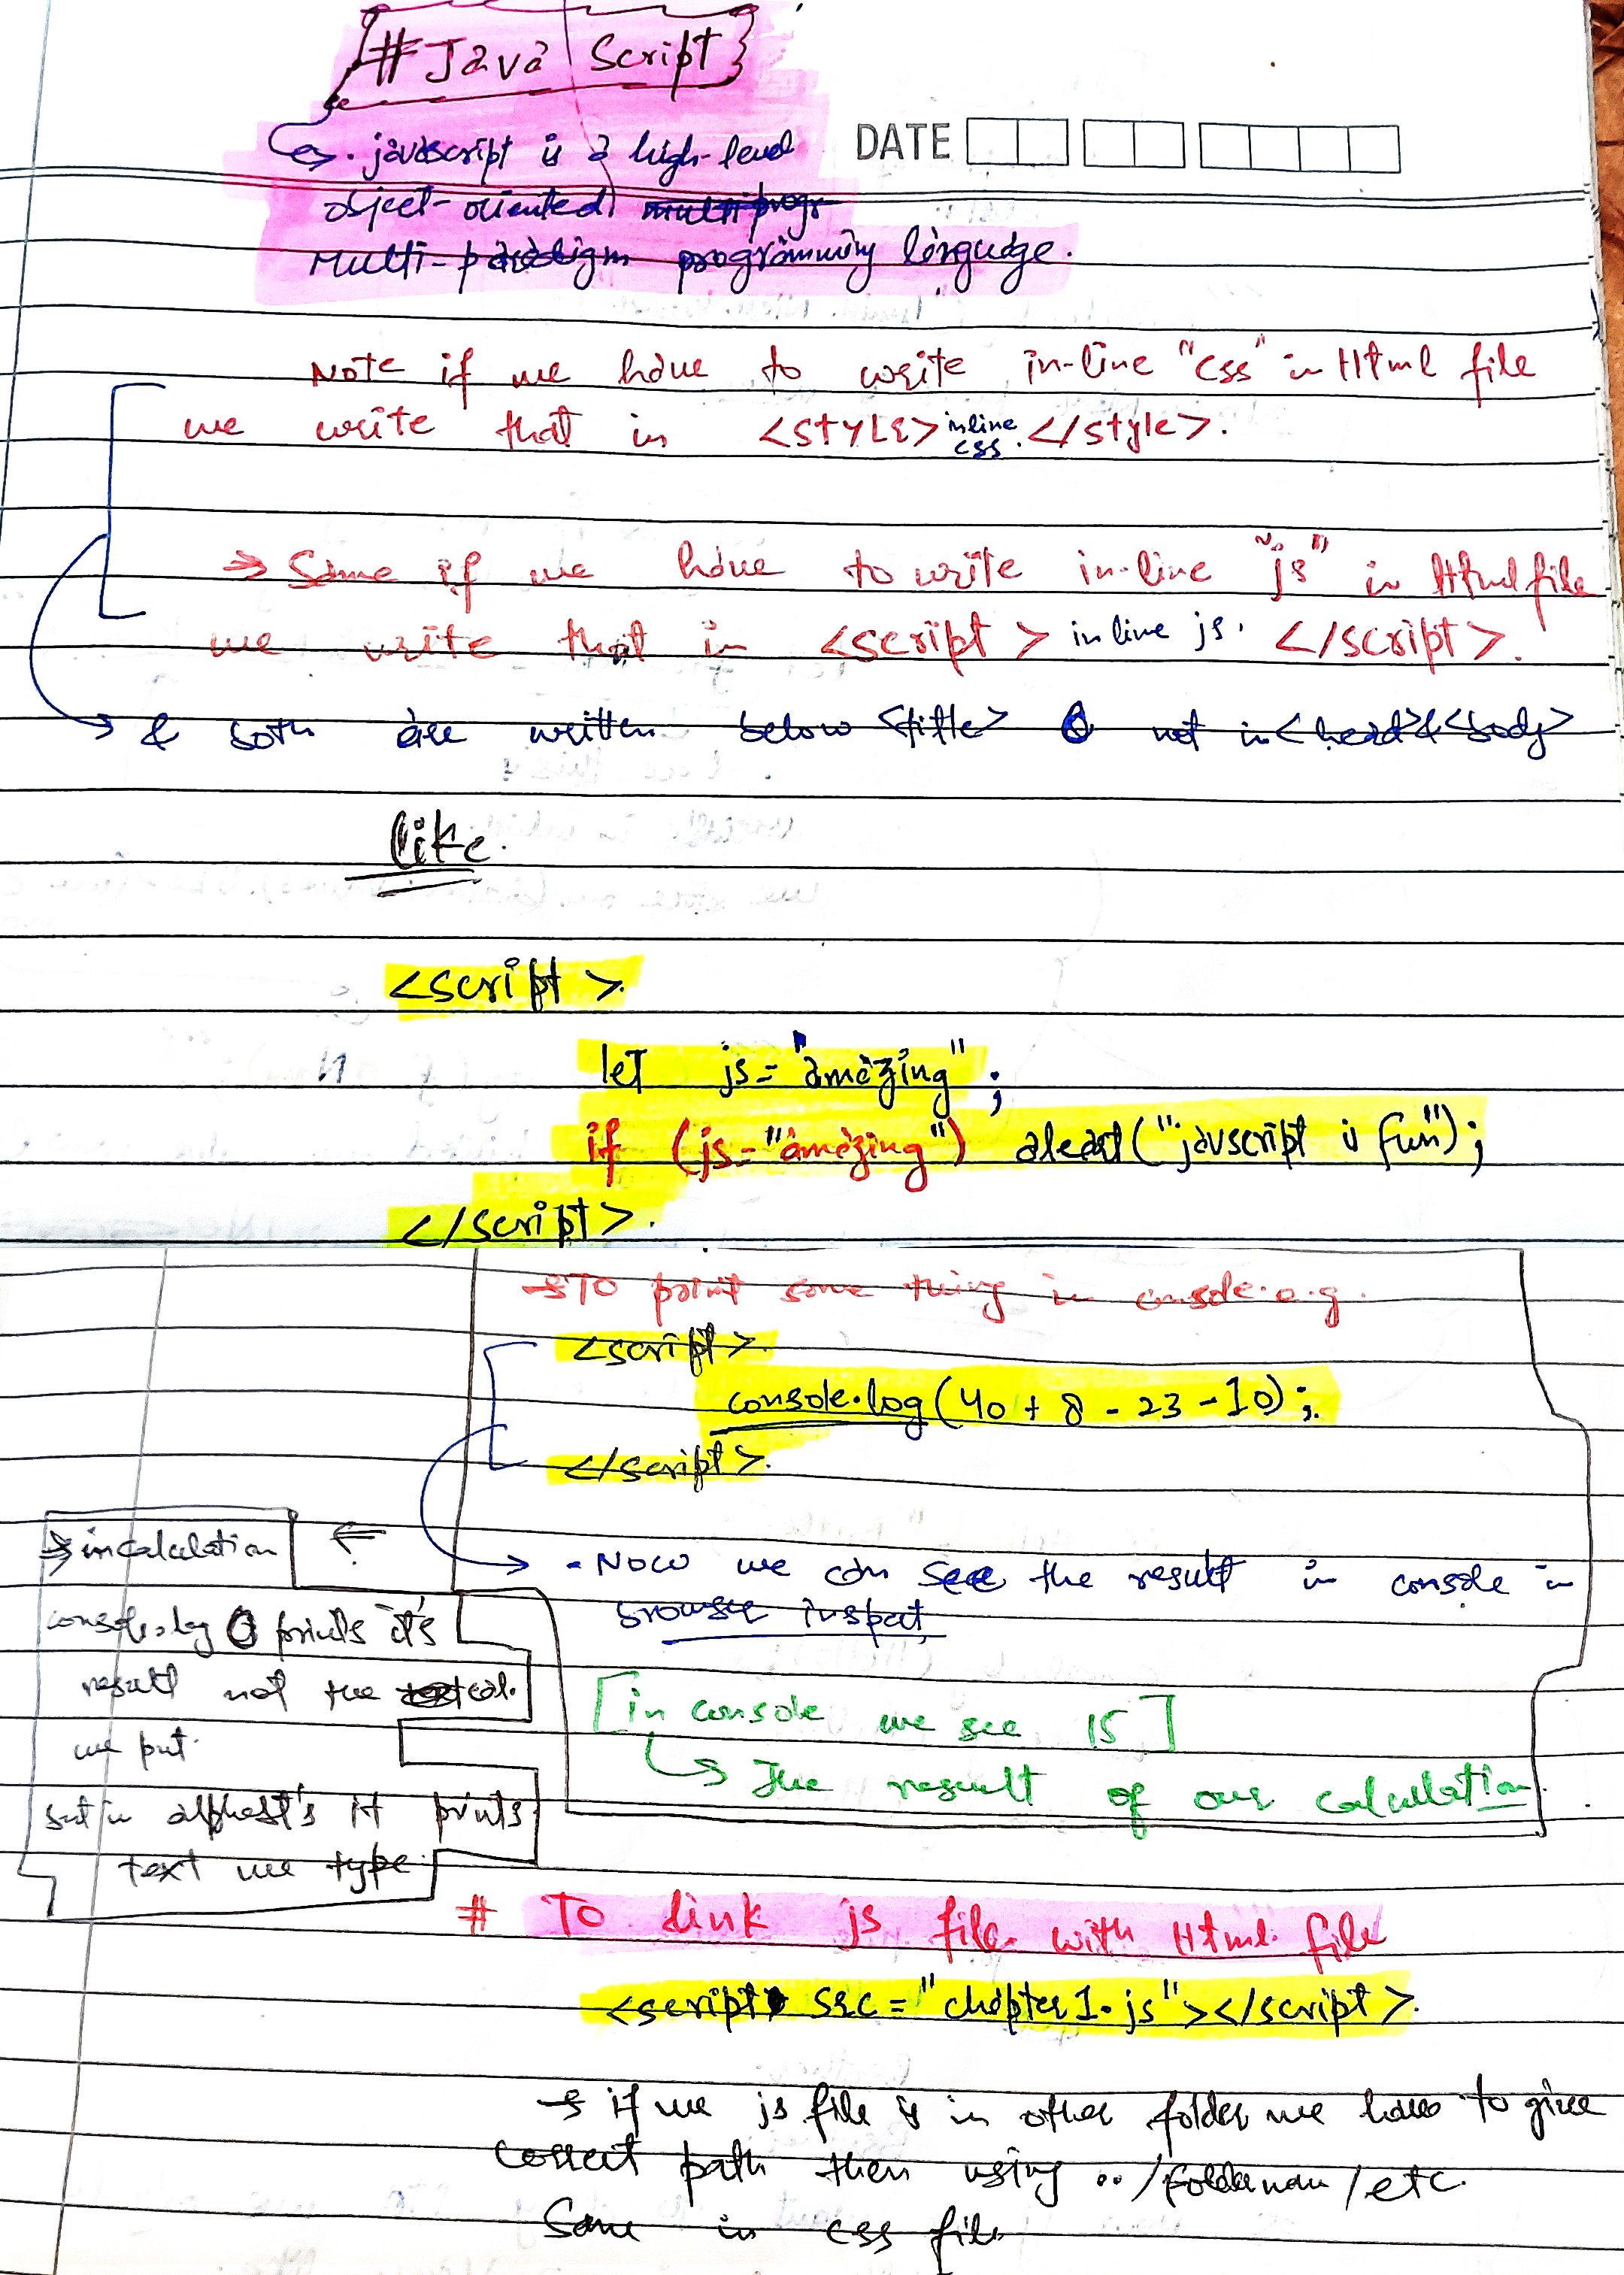 # Java Script
DATE
→ . javascript is a high-level
object-oriented, multi progr
Multi-paradigm programming language.
Note if we have to write in-line "css" in Html file
we write that in <STYLE> inline css. </style>.
⇒ Same if we have to write in-line "js" in Html file
we write that in <script> inline js. </script>.
→ & both are written below <title> & not in <head> & <body>
like.
<script>.
let js = "amazing";
if (js = "amazing") aleart("javscript is fun");
</script>.
→ To print some thing in console. e.g.
<script>.
console.log(40 + 8 - 23 - 10);.
</script>.
→ - Now we can see the result in console in
browser inspect
[in console we see 15]
↳ The result of our calculation.
⇒ in calculation ←
console.log prints it's
result not the cal.
we put.
but in alphabet's it prints
text we type.
# To link js file with Html file
<script src = "chapter1.js"></script>.
→ if we js file is in other folder we have to give
correct path then using ../foldernam/etc.
Same in css file